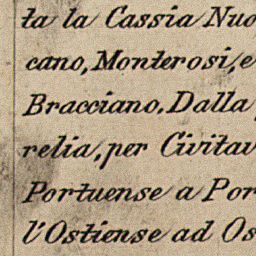 ta la Cassia Nuo
cano, Monterosi, e
Bracciano. Dalla
relia, per Civitav
Portuense a Por
l'Ostiense ad Os